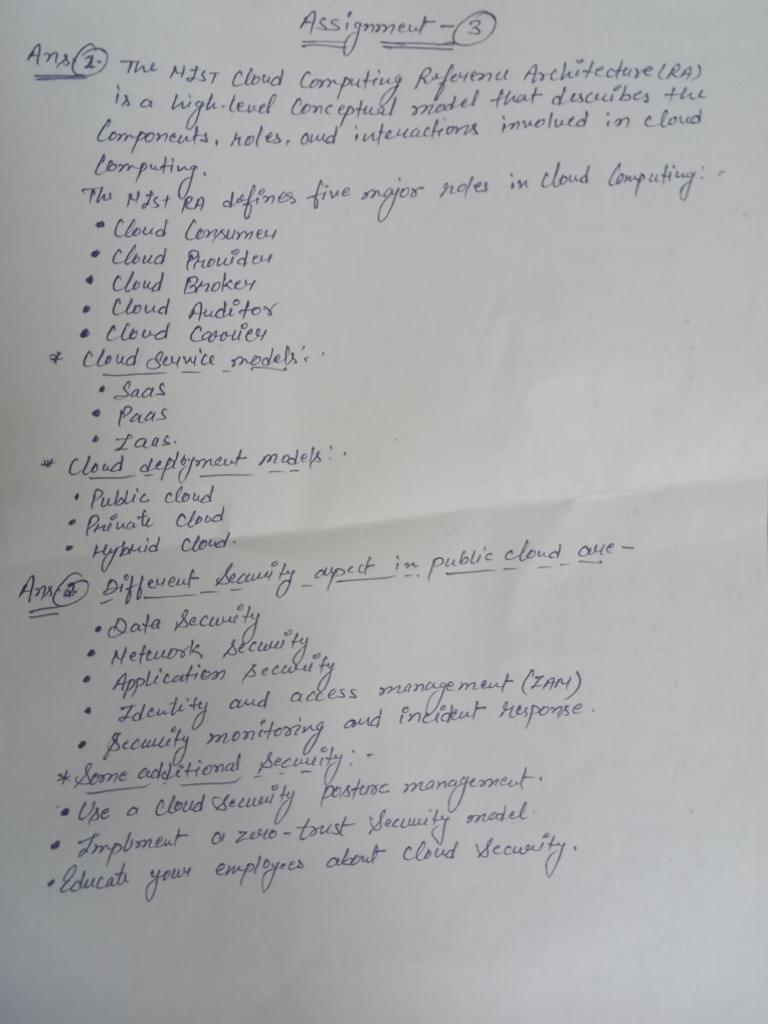 Assignment - 3
Ans 1. The NIST Cloud Computing Reference Architecture (RA)
is a high-level Conceptual model that describes the
Components, roles, and interactions involved in cloud
Computing.
The NIST RA defines five major roles in Cloud Computing:-
• Cloud Consumer
• Cloud Provider
• Cloud Broker
• Cloud Auditor
• Cloud Carrier
* Cloud Service models:-
• SaaS
• PaaS
• IaaS.
* Cloud deployment models:-
• Public cloud
• Private Cloud
• Hybrid Cloud.
Ans 2. Different Security aspect in public cloud are-
• Data Security
• Network Security
• Application Security
• Identity and access management (IAM)
• Security monitoring and incident response.
* Some additional Security:-
• Use a Cloud Security posture management.
• Implment a zero-trust Security model.
• Educate your employees about Cloud Security.